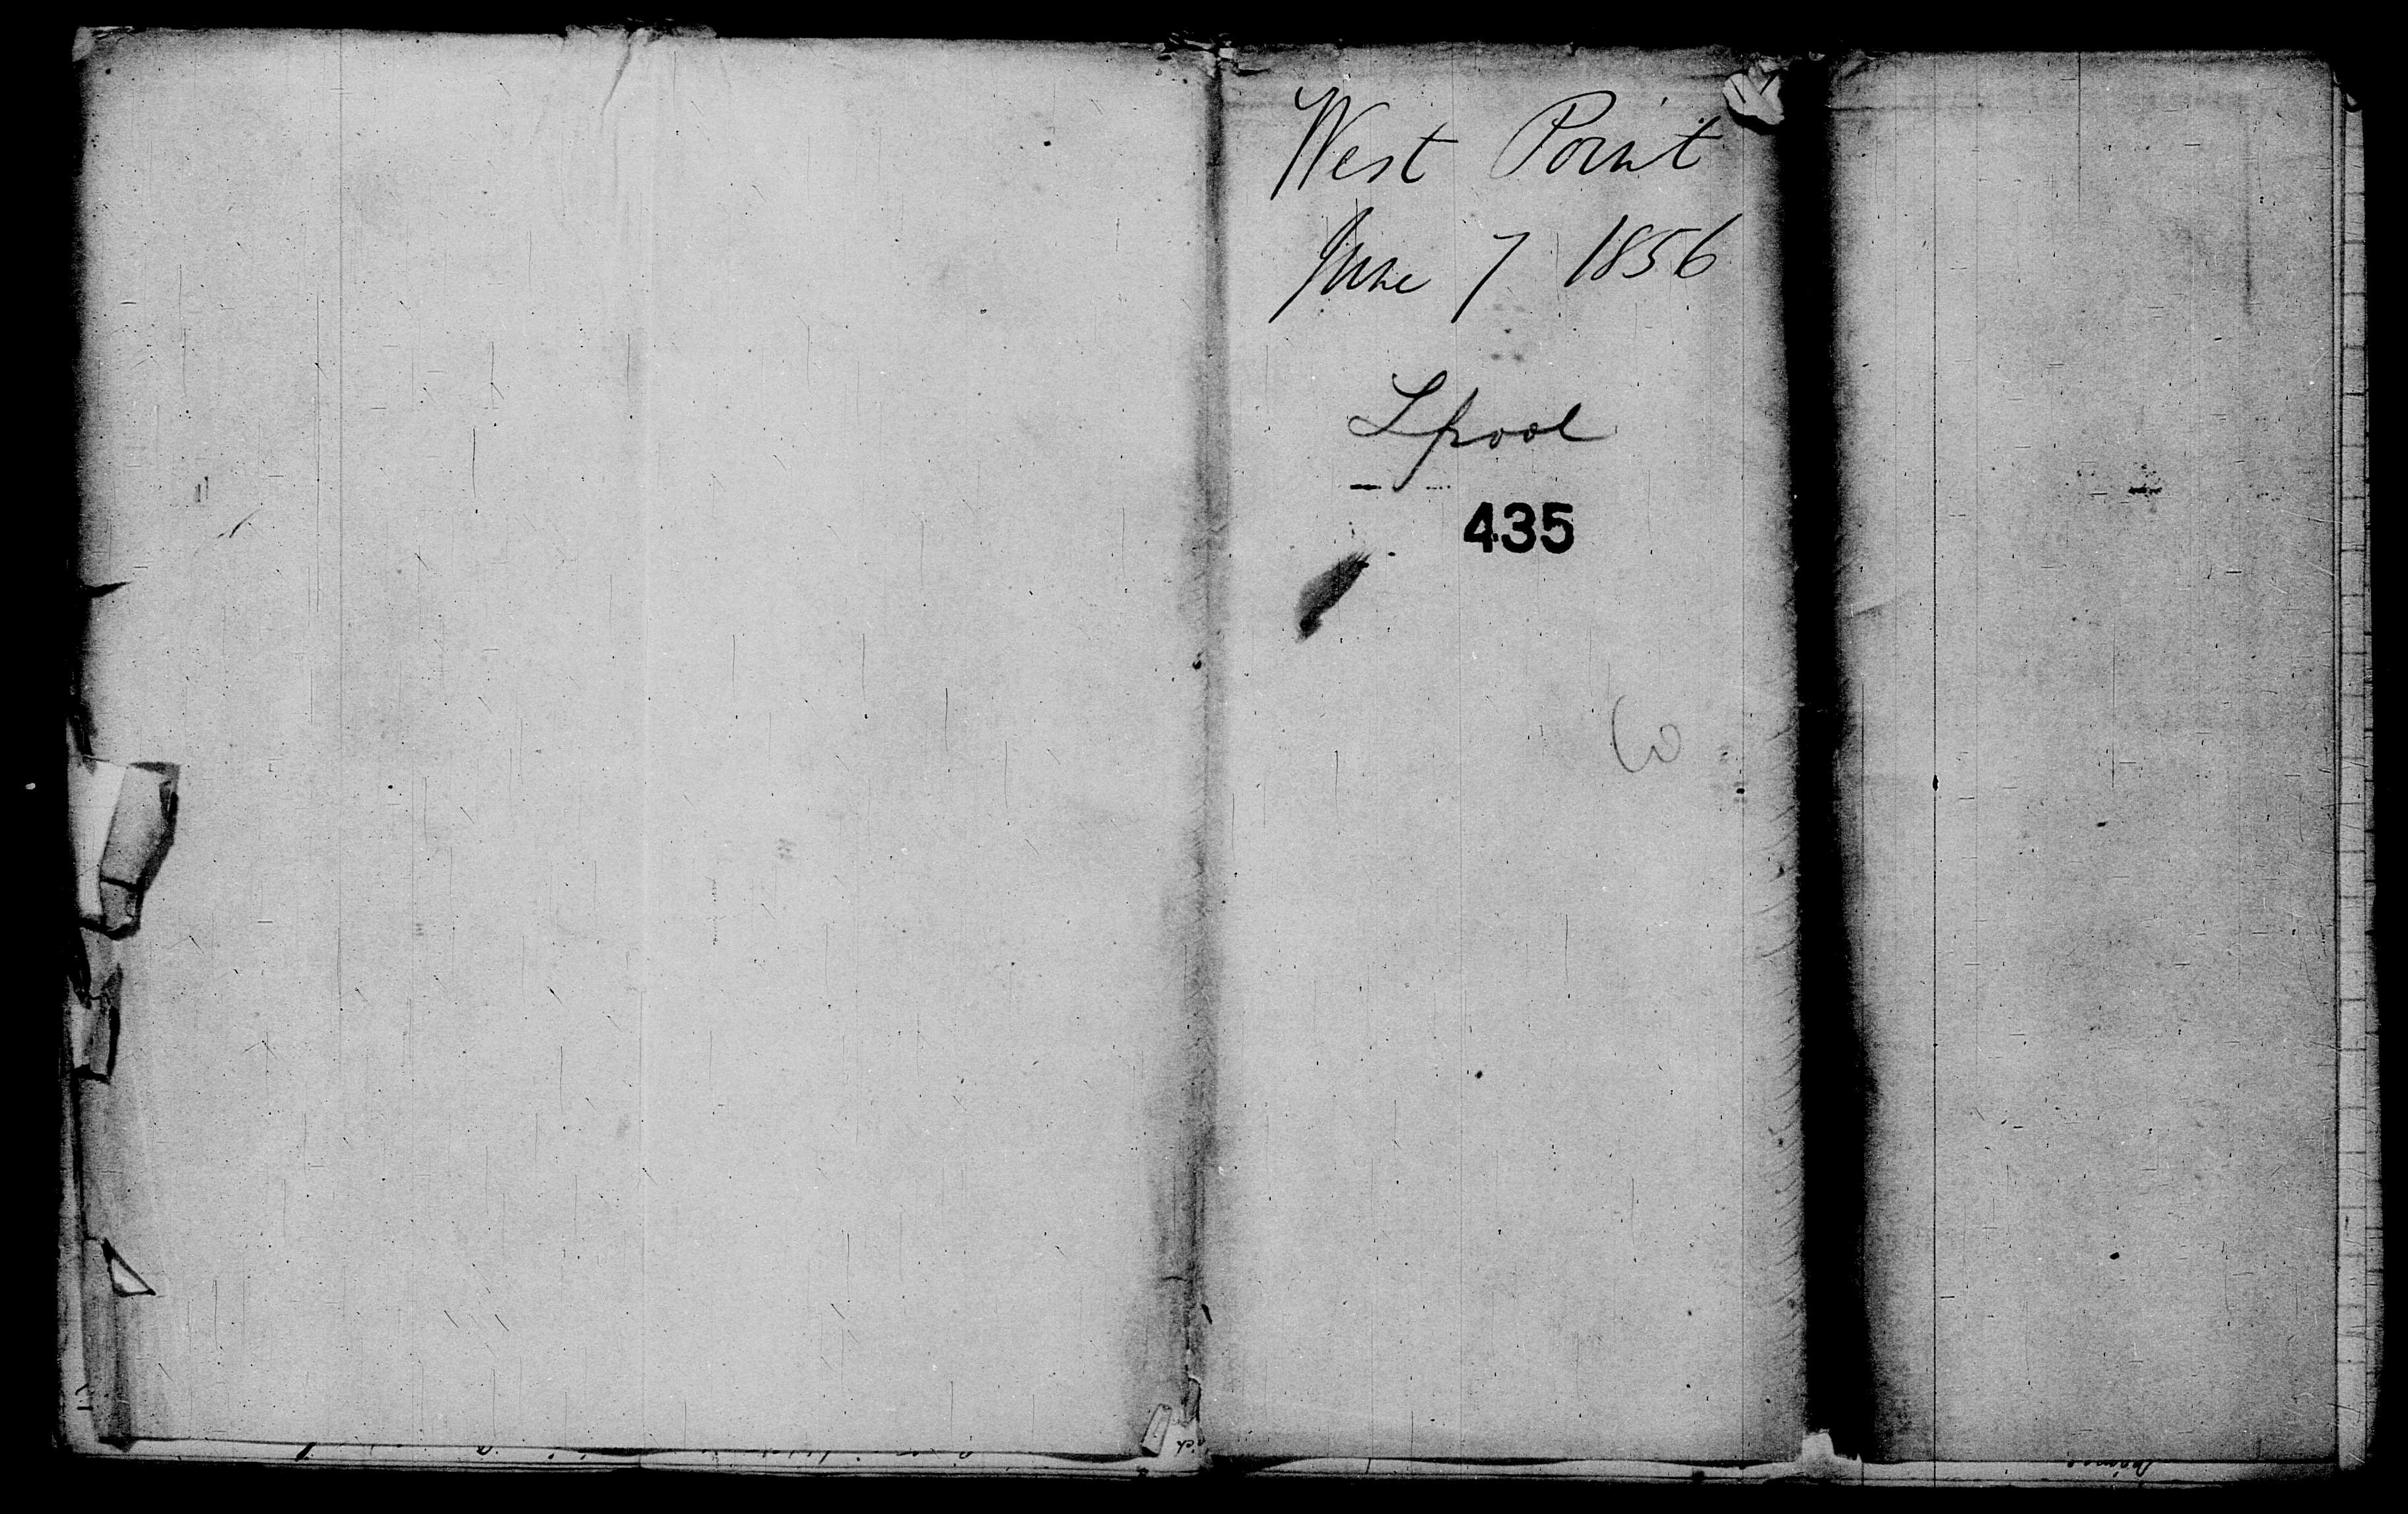 West Point
June 7 1856
Lpool
435